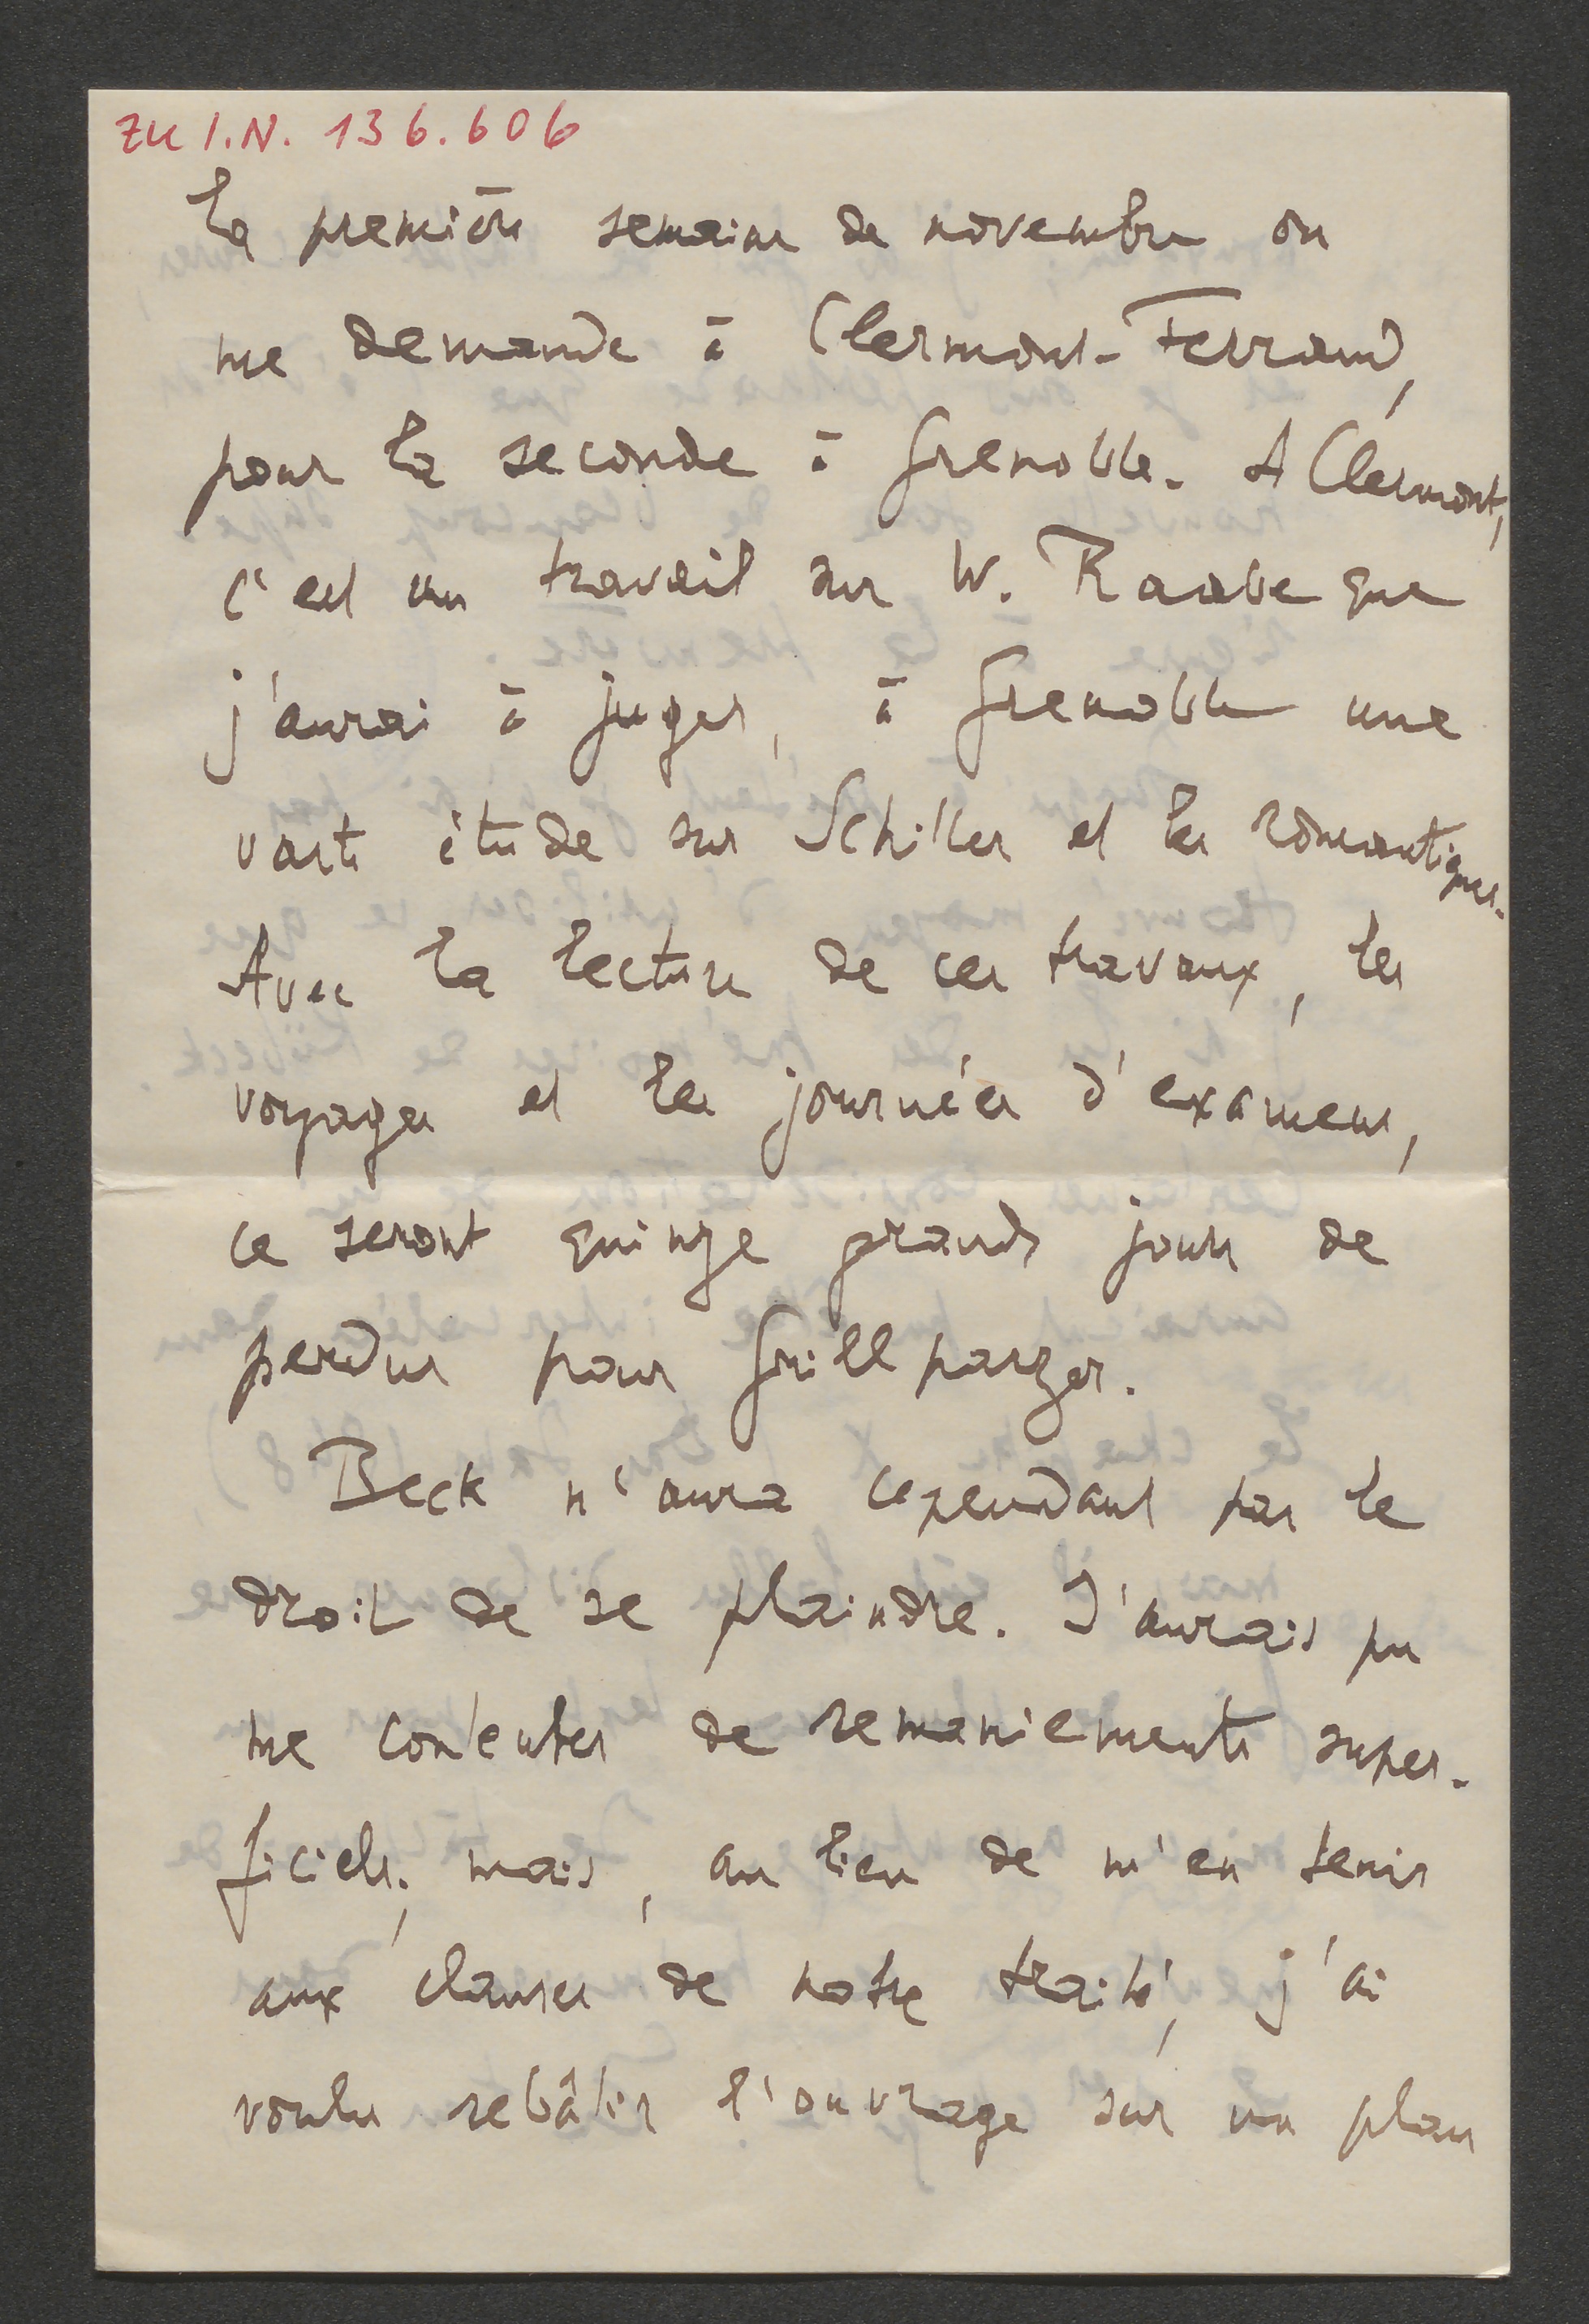 ZU I.N. 136.606
La première semaine de novembre on
me demande à Clermont-Ferrand,
pour la seconde à Grenoble. A Clermont,
c'est un travail sur W. Raabe que
j'aurai à juger, à Grenoble une
vaste étude sur Schiller et les romantiques.
Avec la lecture de ces travaux, les
voyages et les journées d'examens,
ce seront quinze grands jours de
perdus pour Grillparzer.
Beck n'aura cependant pas le
droit de se plaindre. J'aurais pu
me contenter de remaniements super-
ficiels; mais, au lieu de m'en tenir
aux clauses de notre traité, j'ai
voulu rebâtir l'ouvrage sur un plan